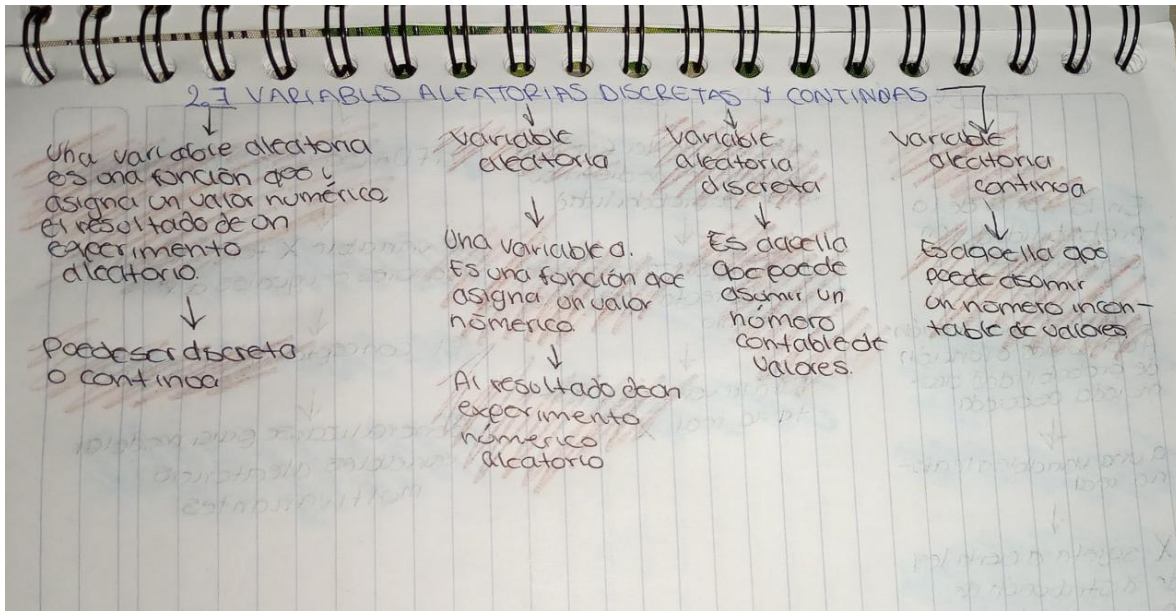 2.7 VARIABLES ALEATORIAS DISCRETAS Y CONTINUAS
Una variable aleatoria
es una función que
asigna un valor numérico,
el resultado de un
experimento
aleatorio.
Puede ser discreta
o continua
Variable
aleatoria
Una variable a.
Es una función que
asigna un valor
númerico
Al resultado de un
experimento
númerico
aleatorio
Variable
aleatoria
discreta
Es aquella
que puede
asumir un
número
contable de
valores.
Variable
aleatoria
continua
Es aquella que
puede asumir
un número incon-
table de valores